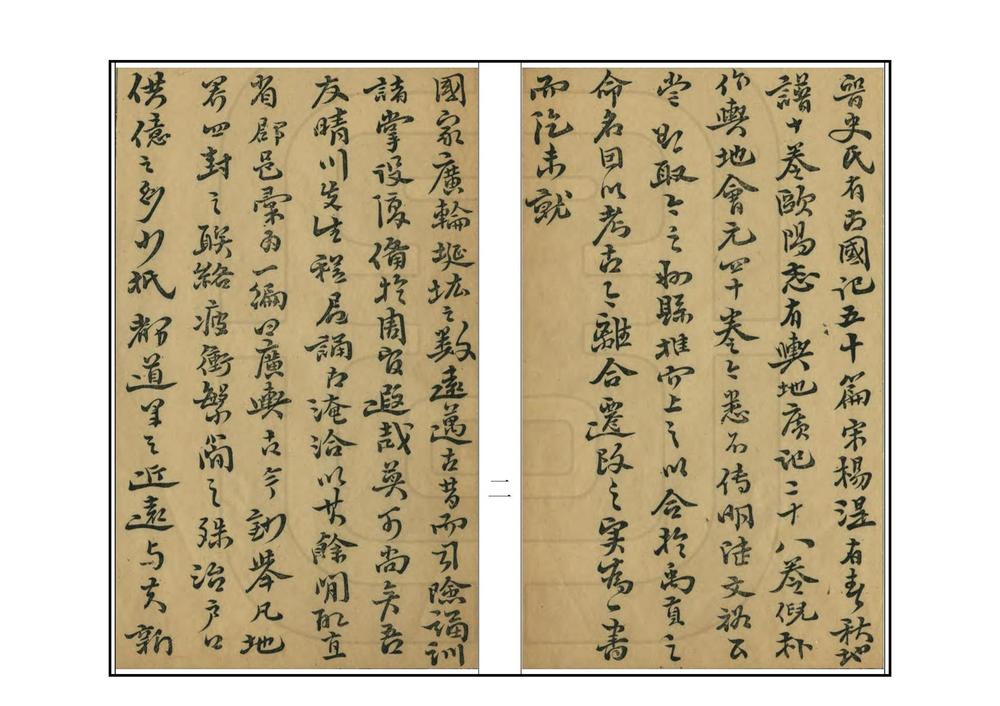 晉史氏有古國記五十篇宋楊湜有春秋地
譜十卷歐陽忞有輿地廣記三十八卷倪朴
作輿地會元四十卷今悉不傳明陸文裕公
嘗欲取今之州縣推而上之以合於禹貢之
命名因以考古今離合遷改之實為一書
而訖未就
國家廣輪埏垓之數遠邁古昔而司險誦訓
諸掌設復備於周官遐哉莫可尚矣吾
友晴川先生程居誦古淹洽以其餘閒取直
省郡邑彙為一編曰廣輿古今鈔舉凡地
界四封之聯絡疲衝繁簡之殊治戶口
供億之多少以秪都道里之近遠与夫新
二